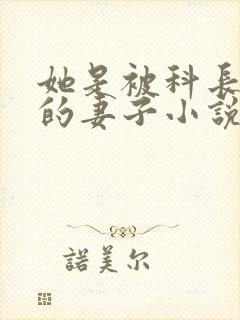 她是被科長
的妻子小說
諾美尔